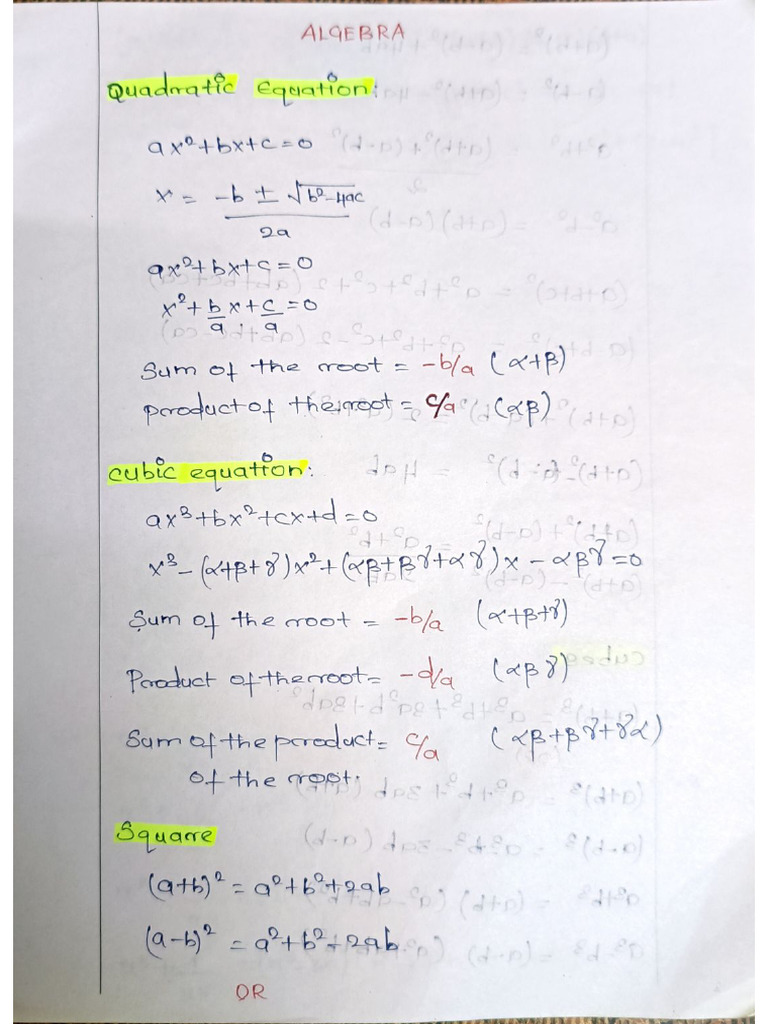 ALGEBRA
Quadratic Equation:
ax²+bx+c=0
x = -b ± √b²-4ac
2a
ax²+bx+c=0
x²+b/a x+c/a=0
Sum of the root = -b/a (α+β)
product of the root = c/a (αβ)
cubic equation:
ax³+bx²+cx+d=0
x³-(α+β+γ)x²+(αβ+βγ+αγ)x-αβγ=0
Sum of the root = -b/a (α+β+γ)
Product of the root = -d/a (αβγ)
Sum of the product = c/a (αβ+βγ+γα)
of the root.
Square
(a+b)² = a²+b²+2ab
(a-b)² = a²+b²+2ab
OR